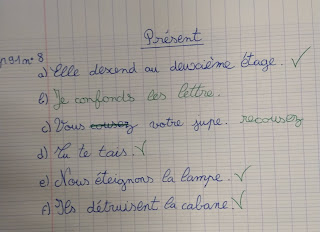 Présent
p.91 n° 8
a) Elle descend au deuxième étage. ✓
b) Je confonds les lettre.
c) Vous cousez votre jupe. recousez
d) Tu te tais. ✓
e) Nous éteignons la lampe. ✓
f) Ils détruisent la cabane. ✓